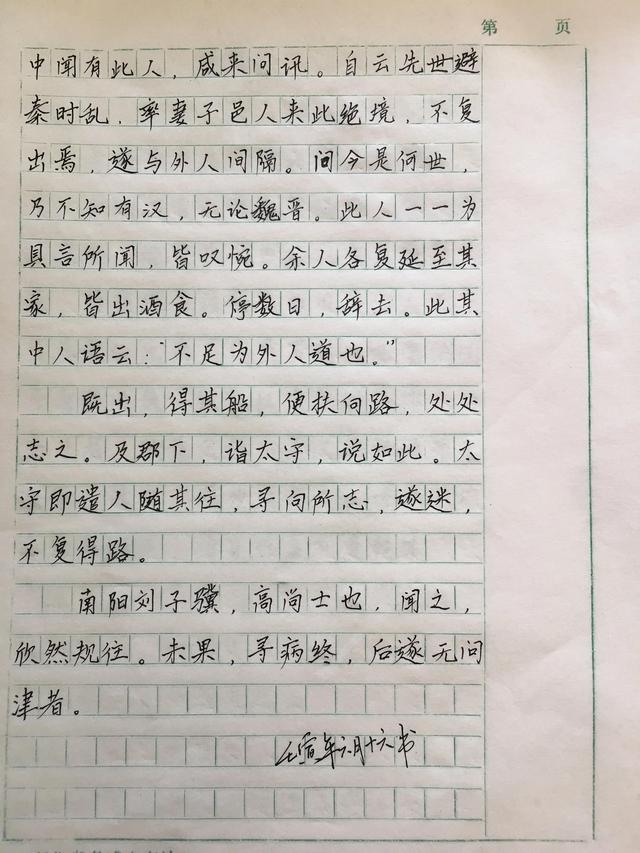 第 页
中闻有此人，咸来问讯。自云先世避
秦时乱，率妻子邑人来此绝境，不复
出焉，遂与外人间隔。问今是何世，
乃不知有汉，无论魏晋。此人一一为
具言所闻，皆叹惋。余人各复延至其
家，皆出酒食。停数日，辞去。此其
中人语云：“不足为外人道也。”
既出，得其船，便扶向路，处处
志之。及郡下，诣太守，说如此。太
守即遣人随其往，寻向所志，遂迷，
不复得路。
南阳刘子骥，高尚士也，闻之，
欣然规往。未果，寻病终，后遂无问
津者。
年六月十六书